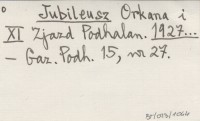 Jubileusz Orkana i
XI Zjazd Podhalan. 1927...
– Gaz. Podh. 15, nr 27.